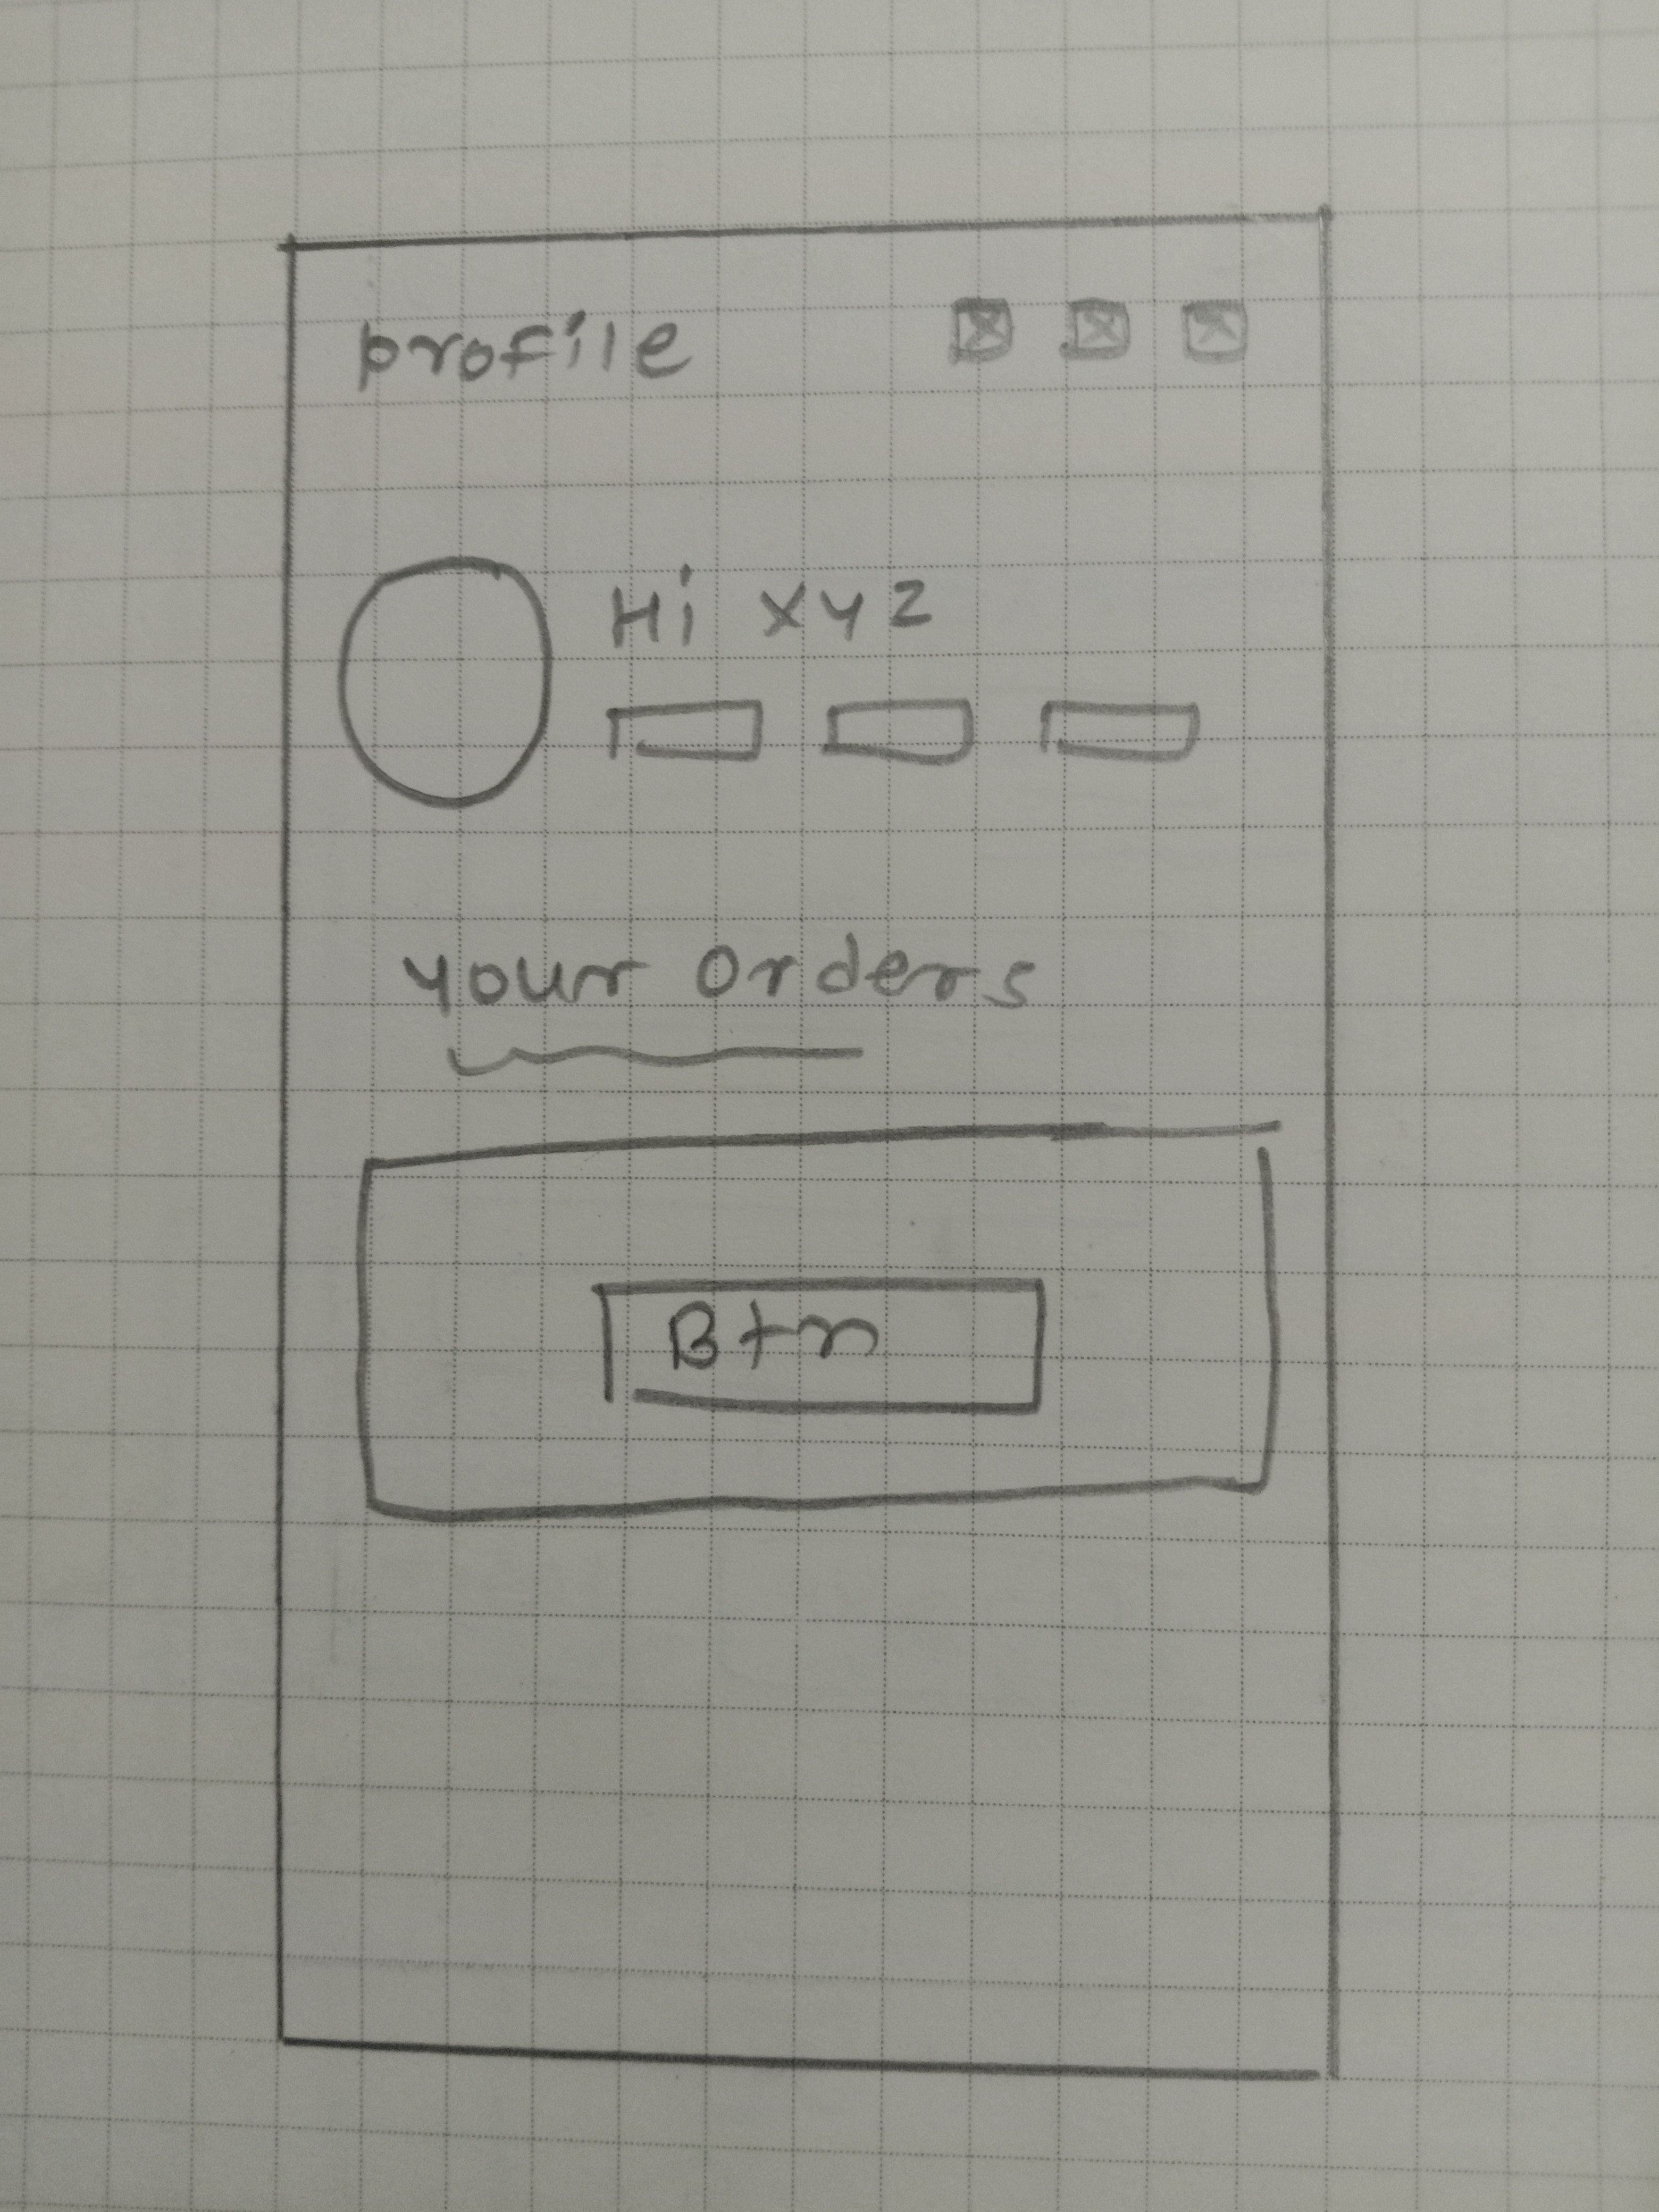 profile
Hi xyz
your orders
Btn